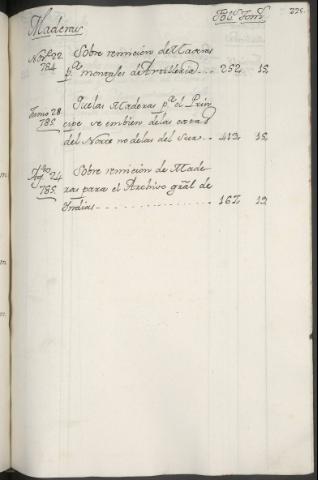 Maderas
Fol. Tom.
275.
Nov.e 22. Sobre remision de Maderas
784. p.a montages de Artilleria... 252 15,
Junio 28. Que las Maderas p.a el Prin
785. cipe se embien de las cortas
del Norte no de las del Sur.. 413 15
Ag.to 24. Sobre remision de Made
785. ras para el Archivo gral de
Indias................ 167 19